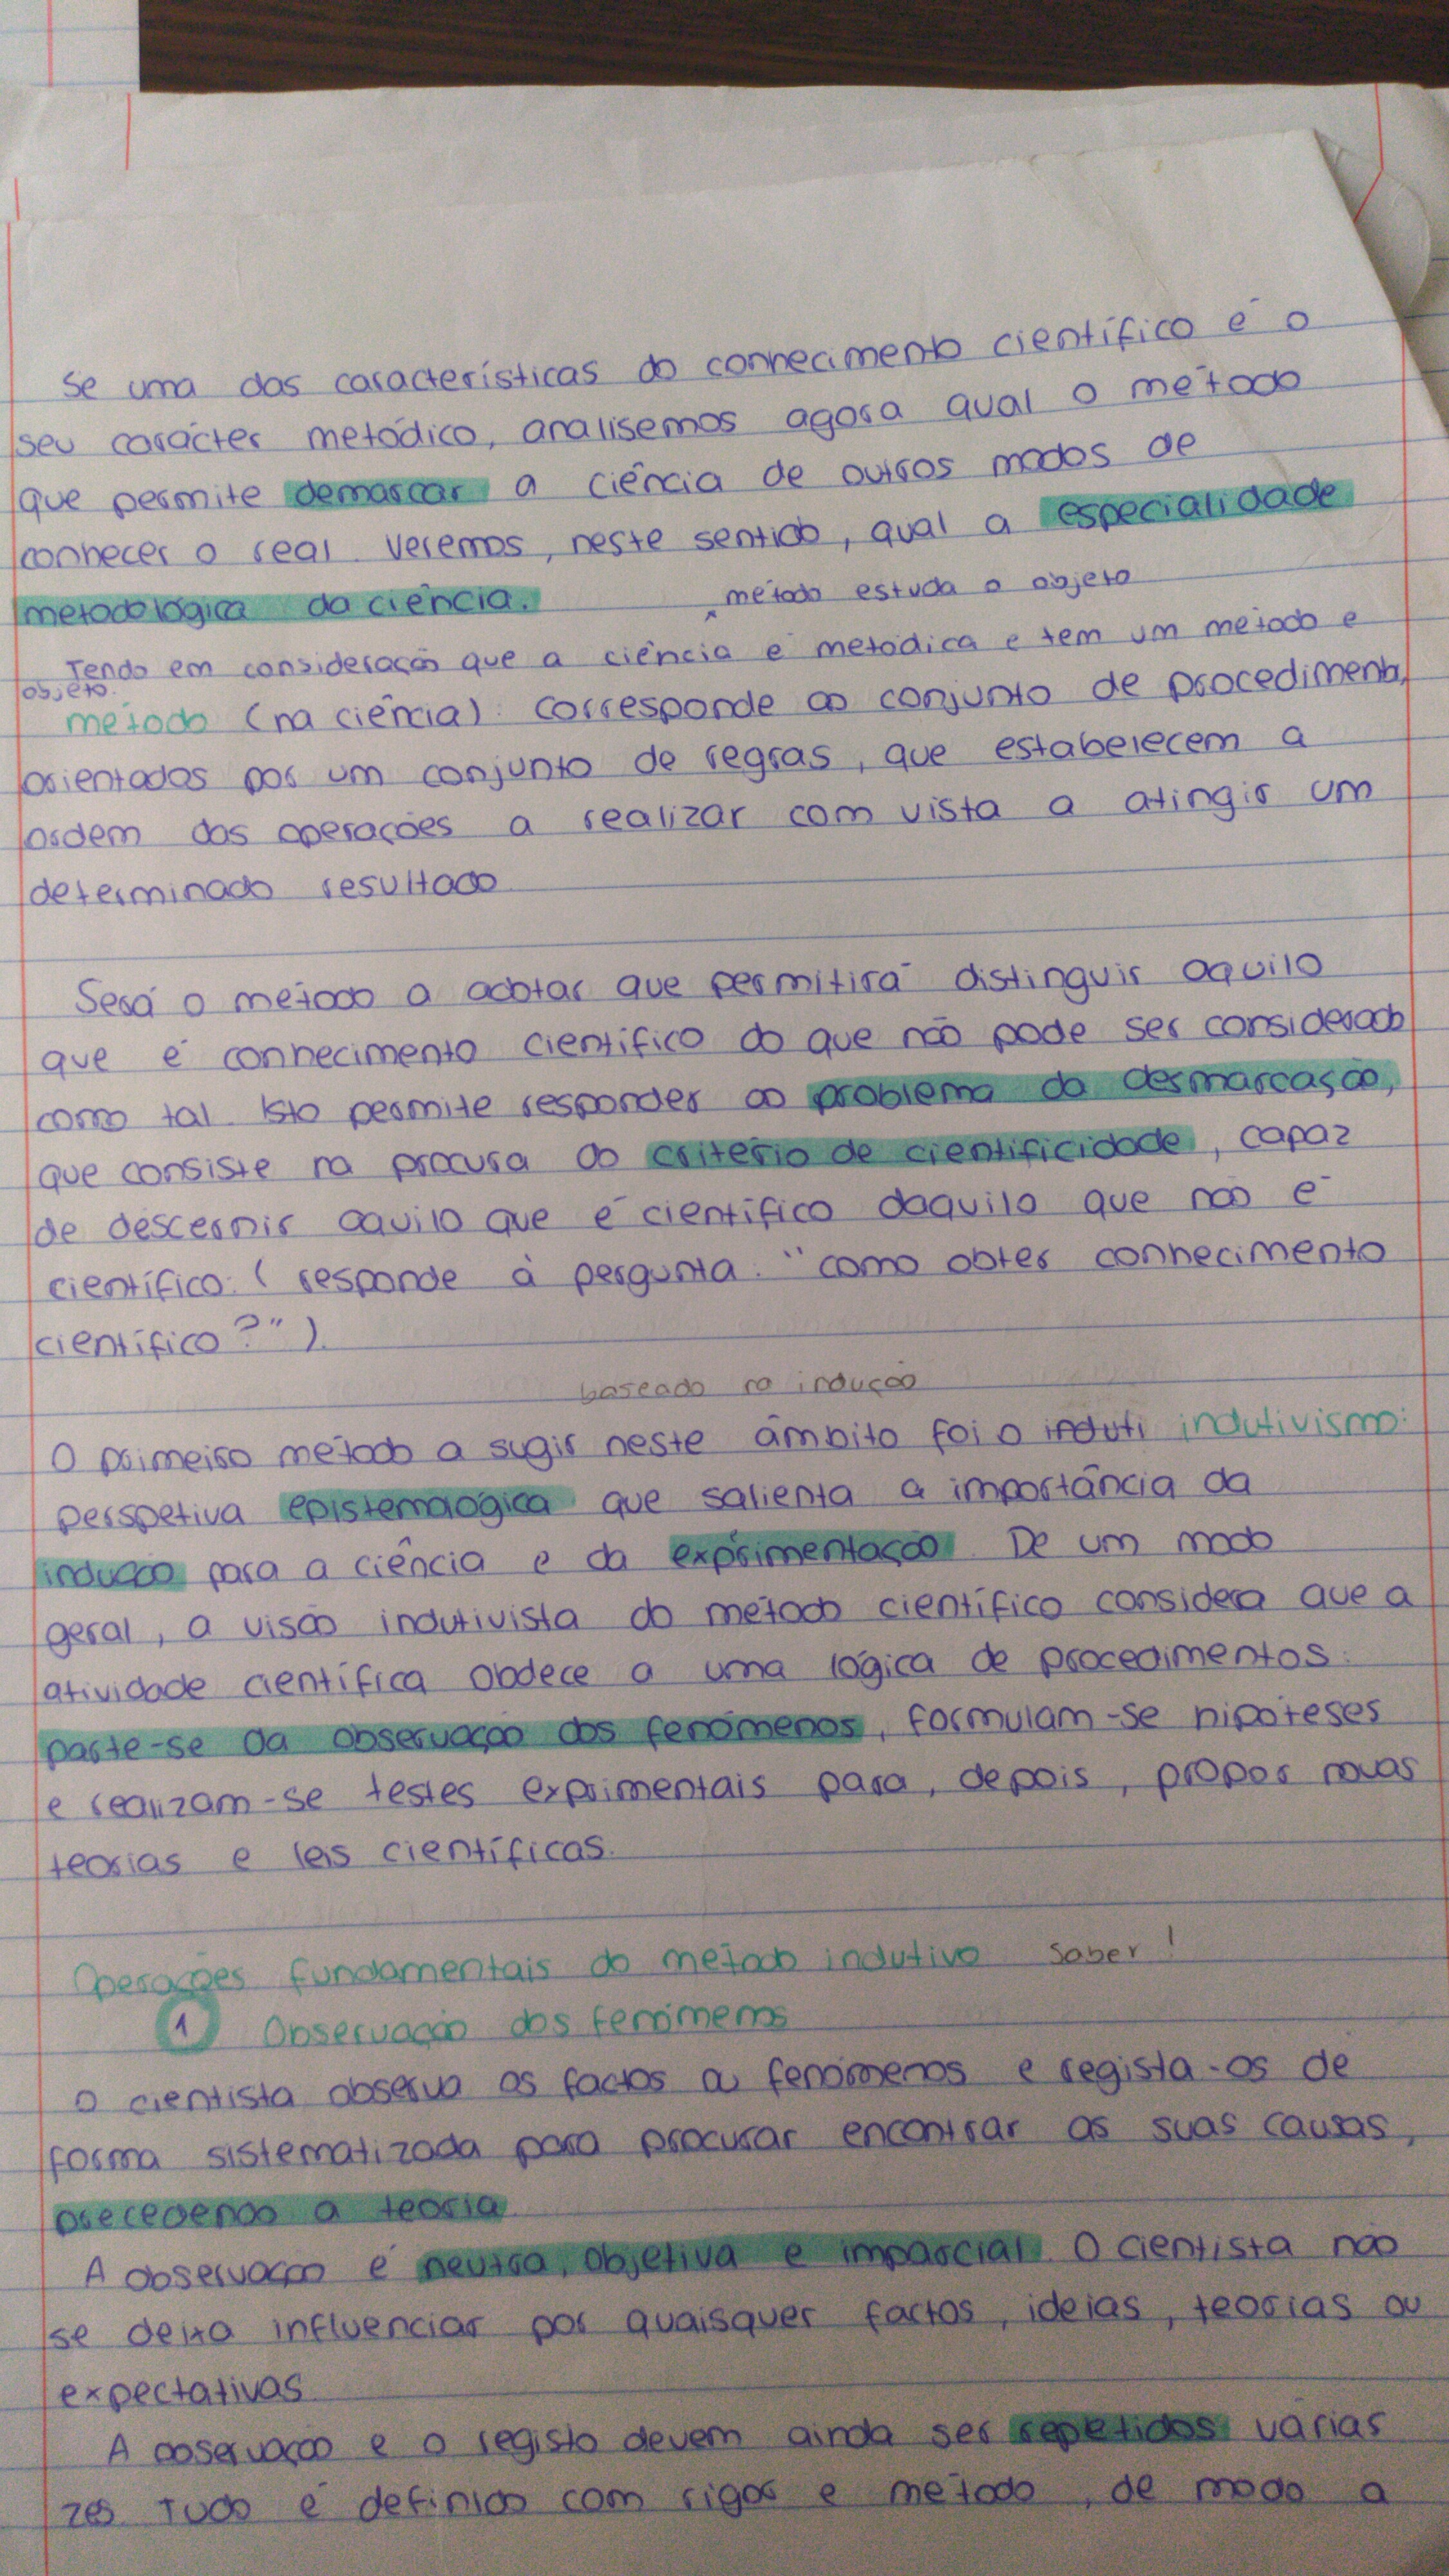 Se uma das características do conhecimento científico é o
seu carácter metódico, analisemos agora qual o método
que permite demarcar a ciência de outros modos de
conhecer o real. Veremos, neste sentido, qual a especialidade
metodológica da ciência.
método estuda o objeto
Tendo em consideração que a ciência é metódica e tem um método e
objeto.
método (na ciência): corresponde ao conjunto de procedimento,
orientados por um conjunto de regras, que estabelecem a
ordem das operações a realizar com vista a atingir um
determinado resultado
Será o método a adotar que permitirá distinguir aquilo
que é conhecimento científico do que não pode ser considerado
como tal. Isto permite responder ao problema da desmarcação,
que consiste na procura do critério de cientificidade, capaz
de descernir aquilo que é científico daquilo que não é
científico. (responde à pergunta: "como obter conhecimento
científico?").
baseado na indução
O primeiro método a sugir neste âmbito foi o induti indutivismo:
perspetiva epistemológica que salienta a importância da
indução para a ciência e da exprimentação. De um modo
geral, a visão indutivista do método científico considera que a
atividade científica obdece a uma lógica de procedimentos:
parte-se da observação dos fenómenos, formulam-se hipóteses
e realizam-se testes exprimentais para, depois, propor novas
teorias e leis científicas.
Operações fundamentais do método indutivo saber!
1 Observação dos fenómenos
O cientista observa os factos ou fenómenos e regista-os de
forma sistematizada para procurar encontrar as suas causas,
precedendo a teoria
A observação é neutra, objetiva e imparcial. O cientista não
se deixa influenciar por quaisquer factos, ideias, teorias ou
expectativas
A observação e o registo devem ainda ser repetidos várias
zes. Tudo é definido com rigor e método, de modo a